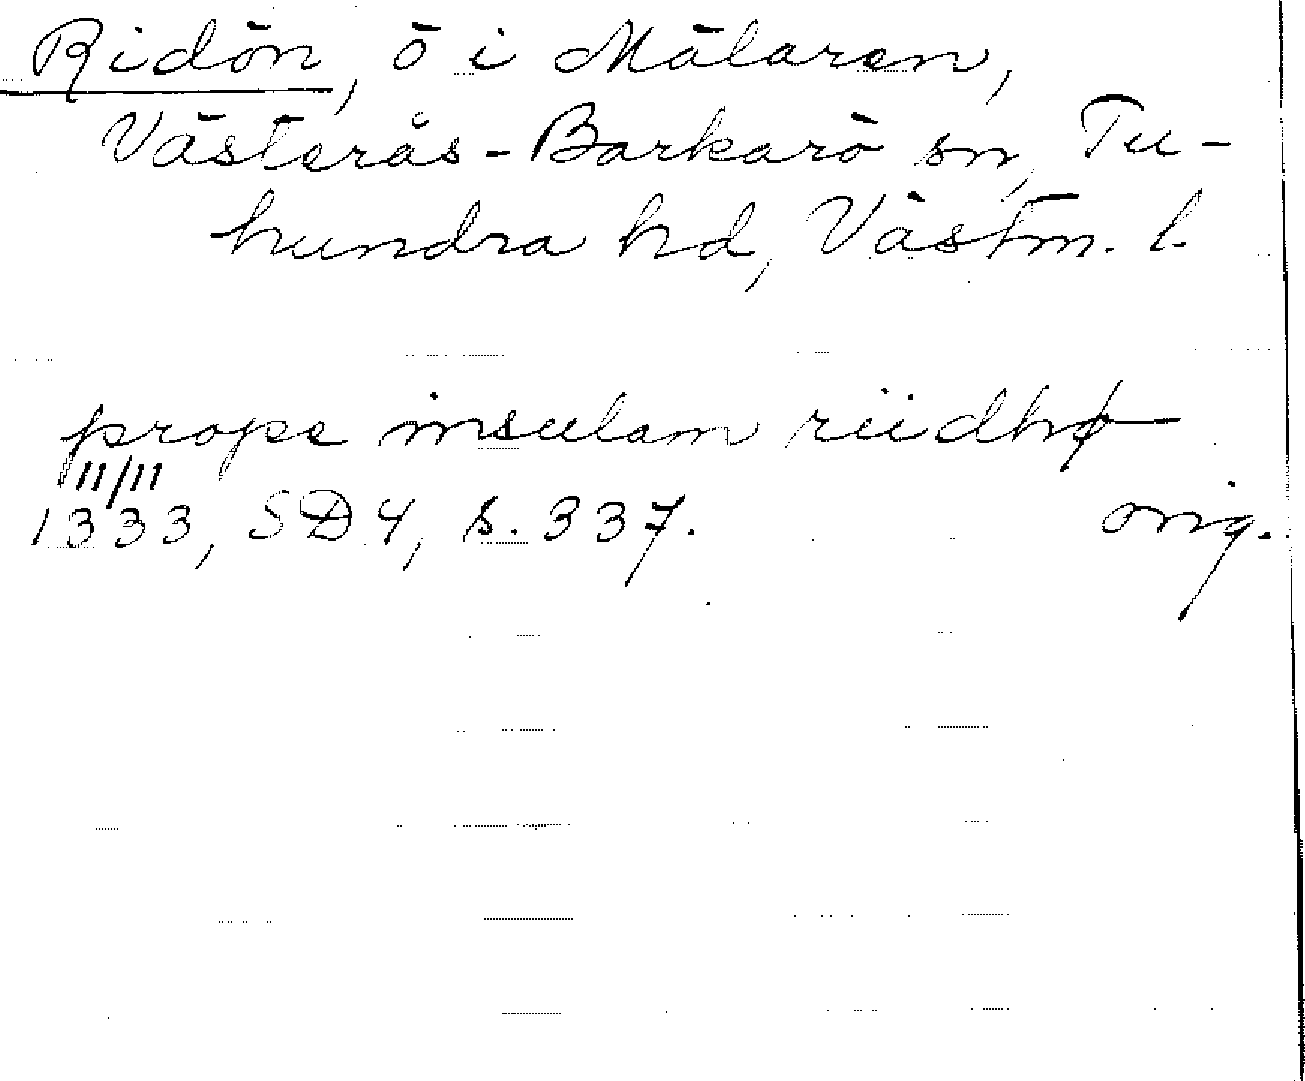 Ridön, ö i Mälaren,
Västerås-Barkarö sn, Tu-
hundra hd, Västm. l.
prope insulam riidhø
11/11
1333, SD 4, s. 337. orig.